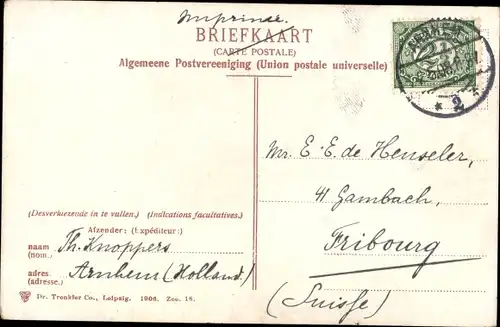 Imprimé.
BRIEFKAART
(CARTE POSTALE)
Algemeene Postvereeniging (Union postale universelle)
2½
2
Mr. E. E. de Henseler,
41 Gambach,
Fribourg
(Suisse)
(Desverkiezende in te vullen.) (Indications facultatives.)
Afzender: (Expéditeur:)
naam
(nom.)
Th. Knoppers
adres
(adresse.)
Arnhem (Holland.)
Dr. Trenkler Co., Leipzig. 1906. Zee. 18.